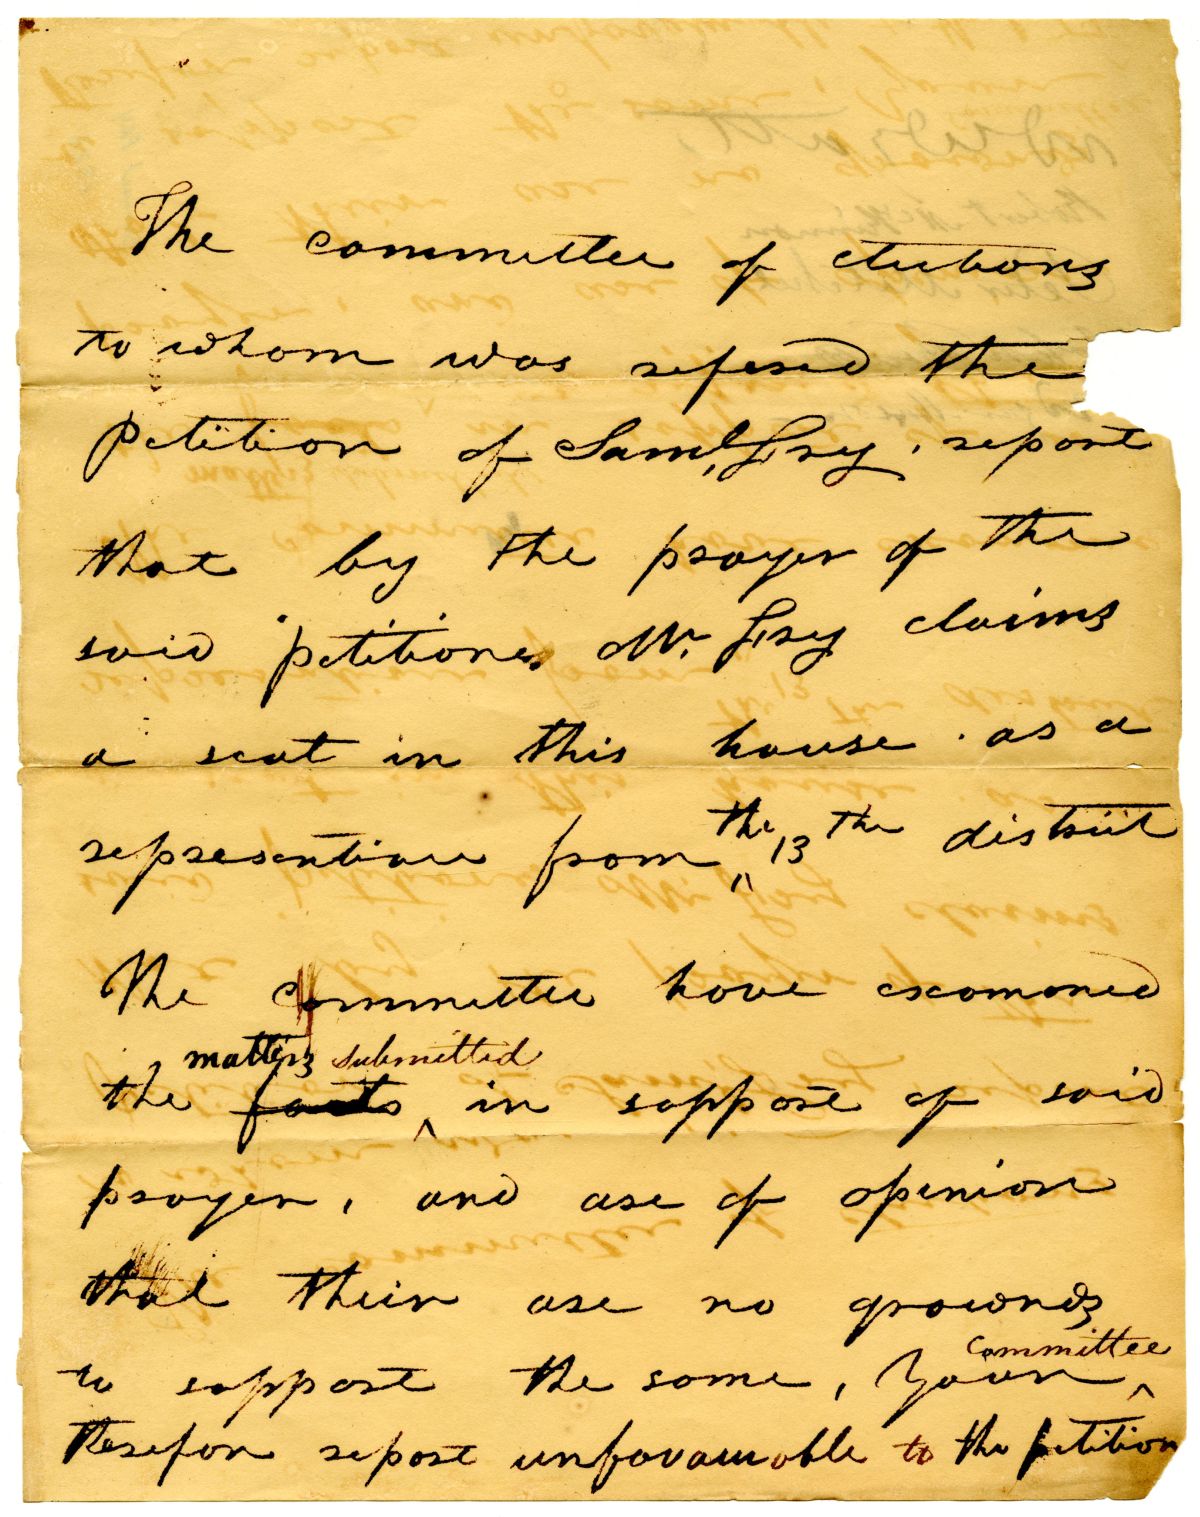 The committee of elections
to whom was refered the
Petition of Saml, Fry, report
that by the prayer of the
said petitioner, Mr. Fry claims
a seat in this house. as a
representiave from the 13 the district
The committee have examoned
matters submitted
the facts, in suppore of said
prayer, and are of opinion
that their are no grownds
to suppore the same, Your committee
therefor repore unfavaurable to the petition